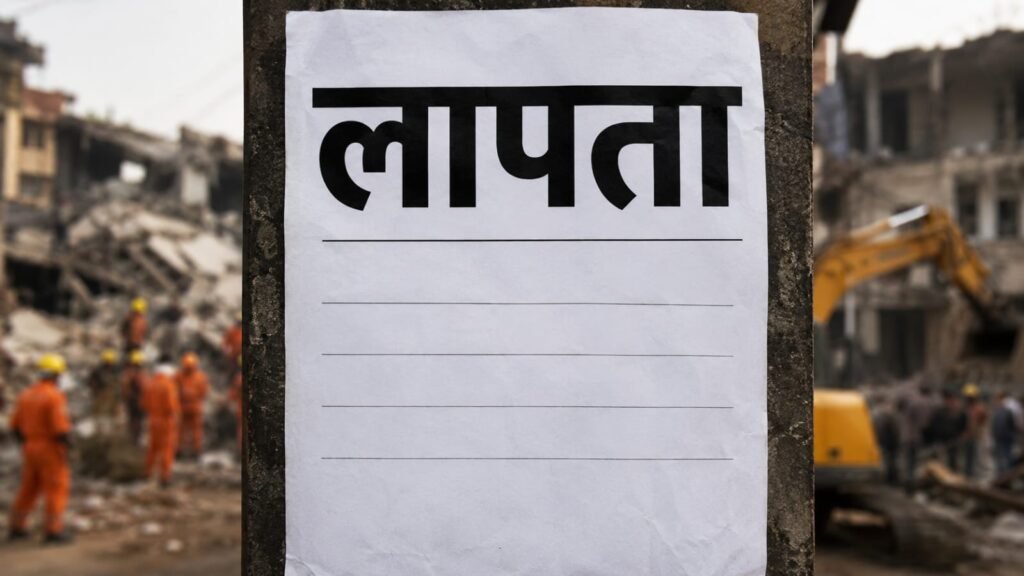 लापता